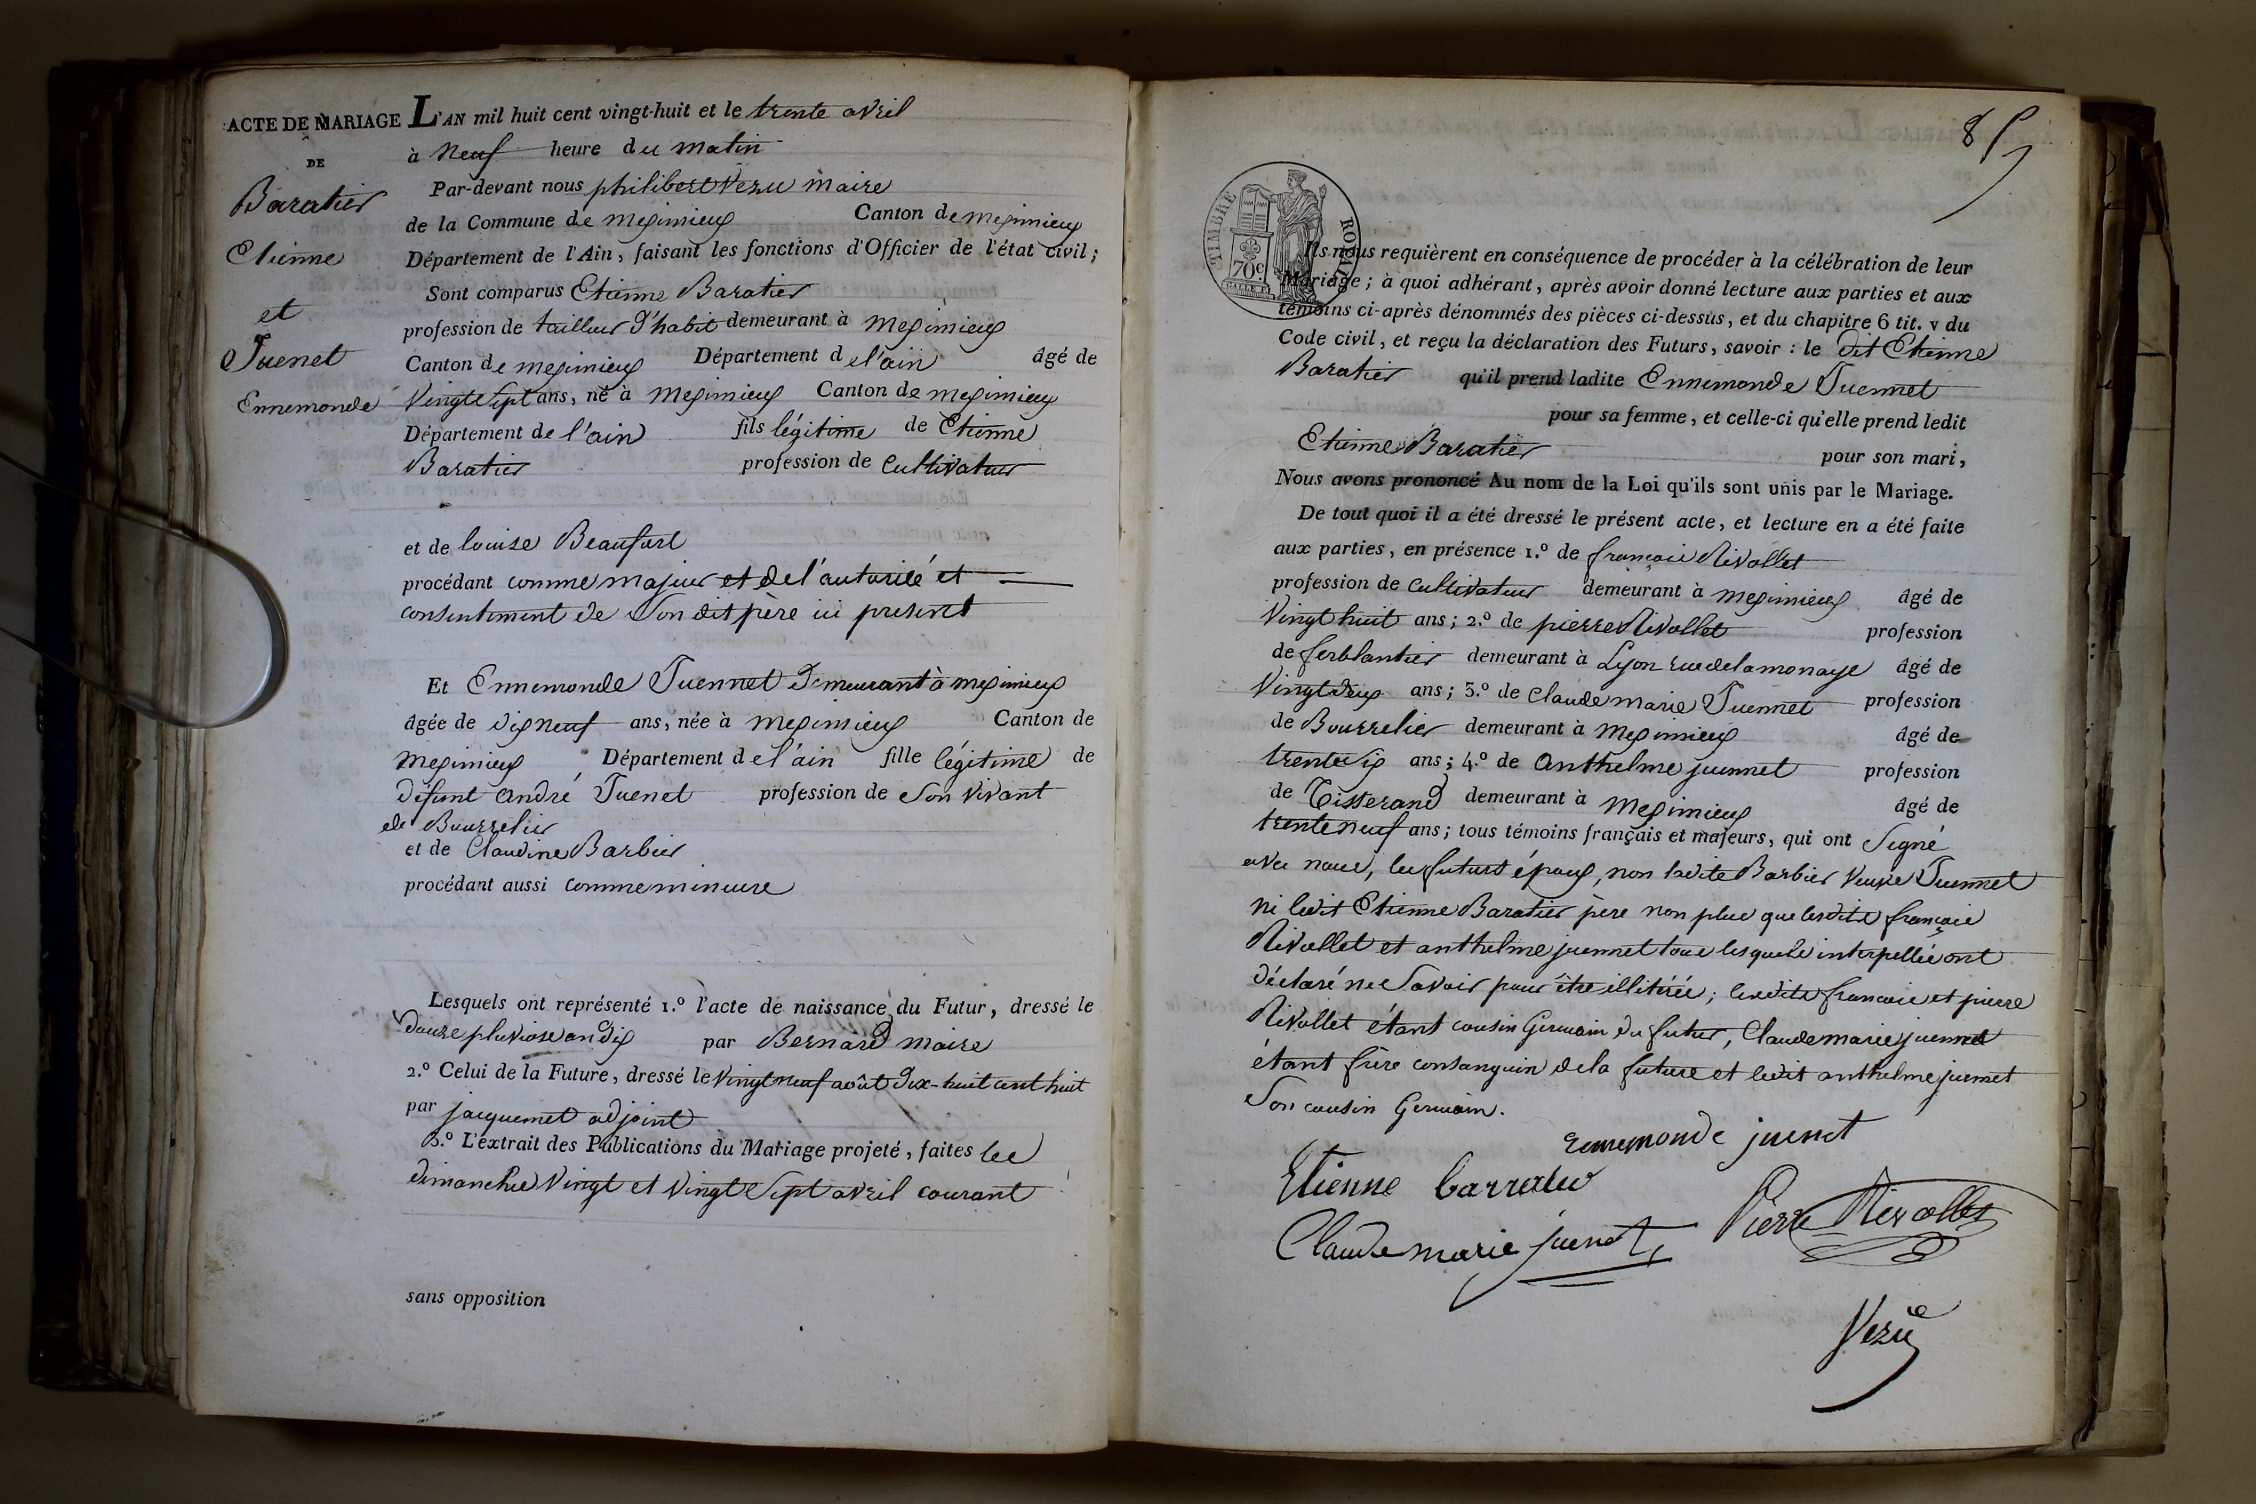 ACTE DE MARIAGE
DE
Baratier
Etienne
et
Juenet
Ennemonde
L'AN mil huit cent vingt-huit et le trente avril
à neuf heure du matin
Par-devant nous philibert Vezu maire
de la Commune de meximieux Canton de meximieux
Département de l'Ain, faisant les fonctions d'Officier de l'état civil;
Sont comparus Etienne Baratier
profession de tailleur d'habit demeurant à meximieux
Canton de meximieux Département de l'ain âgé de
vingt Sept ans, né à meximieux Canton de meximieux
Département de l'ain fils légitime de Etienne
Baratier profession de Cultivateur
et de louise Beaufort
procédant comme majeur et de l'autorité et
consentement de Son dit père ici present
Et Ennemonde Juennet demeurant à meximieux
âgée de dix neuf ans, née à meximieux Canton de
meximieux Département de l'ain fille légitime de
défunt andré Juenet profession de Son vivant
de Bourrelier
et de Claudine Barbier
procédant aussi comme mineure
Lesquels ont représenté 1.º l'acte de naissance du Futur, dressé le
douze pluviose an dix par Bernard maire
2.º Celui de la Future, dressé le vingt neuf août dix-huit cent huit
par jacquemet adjoint
3.º L'extrait des Publications du Mariage projeté, faites les
dimanches vingt et vingt Sept avril courant
sans opposition
85
TIMBRE ROYAL
70c
Ils nous requièrent en conséquence de procéder à la célébration de leur
Mariage; à quoi adhérant, après avoir donné lecture aux parties et aux
témoins ci-après dénommés des pièces ci-dessus, et du chapitre 6 tit. v du
Code civil, et reçu la déclaration des Futurs, savoir: le dit Etienne
Baratier qu'il prend ladite Ennemonde Juennet
pour sa femme, et celle-ci qu'elle prend ledit
Etienne Baratier pour son mari,
Nous avons prononcé Au nom de la Loi qu'ils sont unis par le Mariage.
De tout quoi il a été dressé le présent acte, et lecture en a été faite
aux parties, en présence 1.º de françois Rivollet
profession de Cultivateur demeurant à meximieux âgé de
vingt huit ans; 2.º de pierre Rivollet profession
de ferblantier demeurant à Lyon rue de la monaye âgé de
vingt deux ans; 3.º de Claude marie Juennet profession
de Bourrelier demeurant à meximieux âgé de
trente Six ans; 4.º de anthelme juennet profession
de Tisserand demeurant à meximieux âgé de
trente neuf ans; tous témoins français et majeurs, qui ont Signé
avec nous, les futurs époux, non ladite Barbier veuve Juennet
ni ledit Etienne Baratier père non plus que lesdits françois
Rivollet et anthelme juennet tous lesquels interpellés ont
déclaré ne Savoir pour être illitérés; lesdits françois et pierre
Rivollet étant cousin Germain du futur, Claude marie juennet
étant frère consanguin de la future et ledit anthelme juennet
Son cousin Germain.
ennemonde juenet
Etienne barratier
Claude marie juenet Pierre Rivollet
Vezu